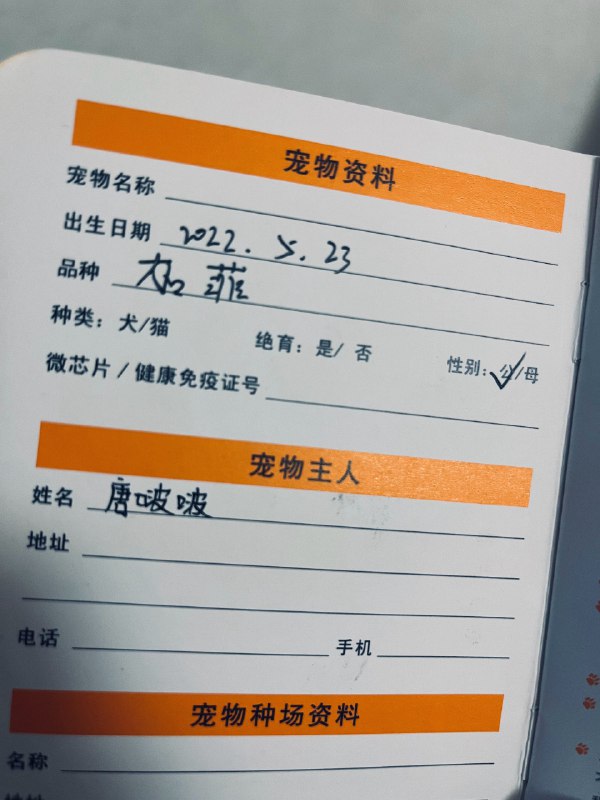 宠物资料
宠物名称
出生日期 2022.5.23
品种 加菲
种类：犬/猫 绝育：是/否 性别：公/母
微芯片/健康免疫证号
宠物主人
姓名 唐啵啵
地址
电话 手机
宠物种场资料
名称